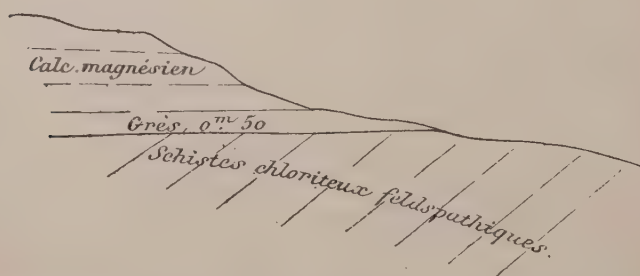 Calc. magnésien
Grès, 0ᵐ 50
Schistes chloriteux feldspathiques.